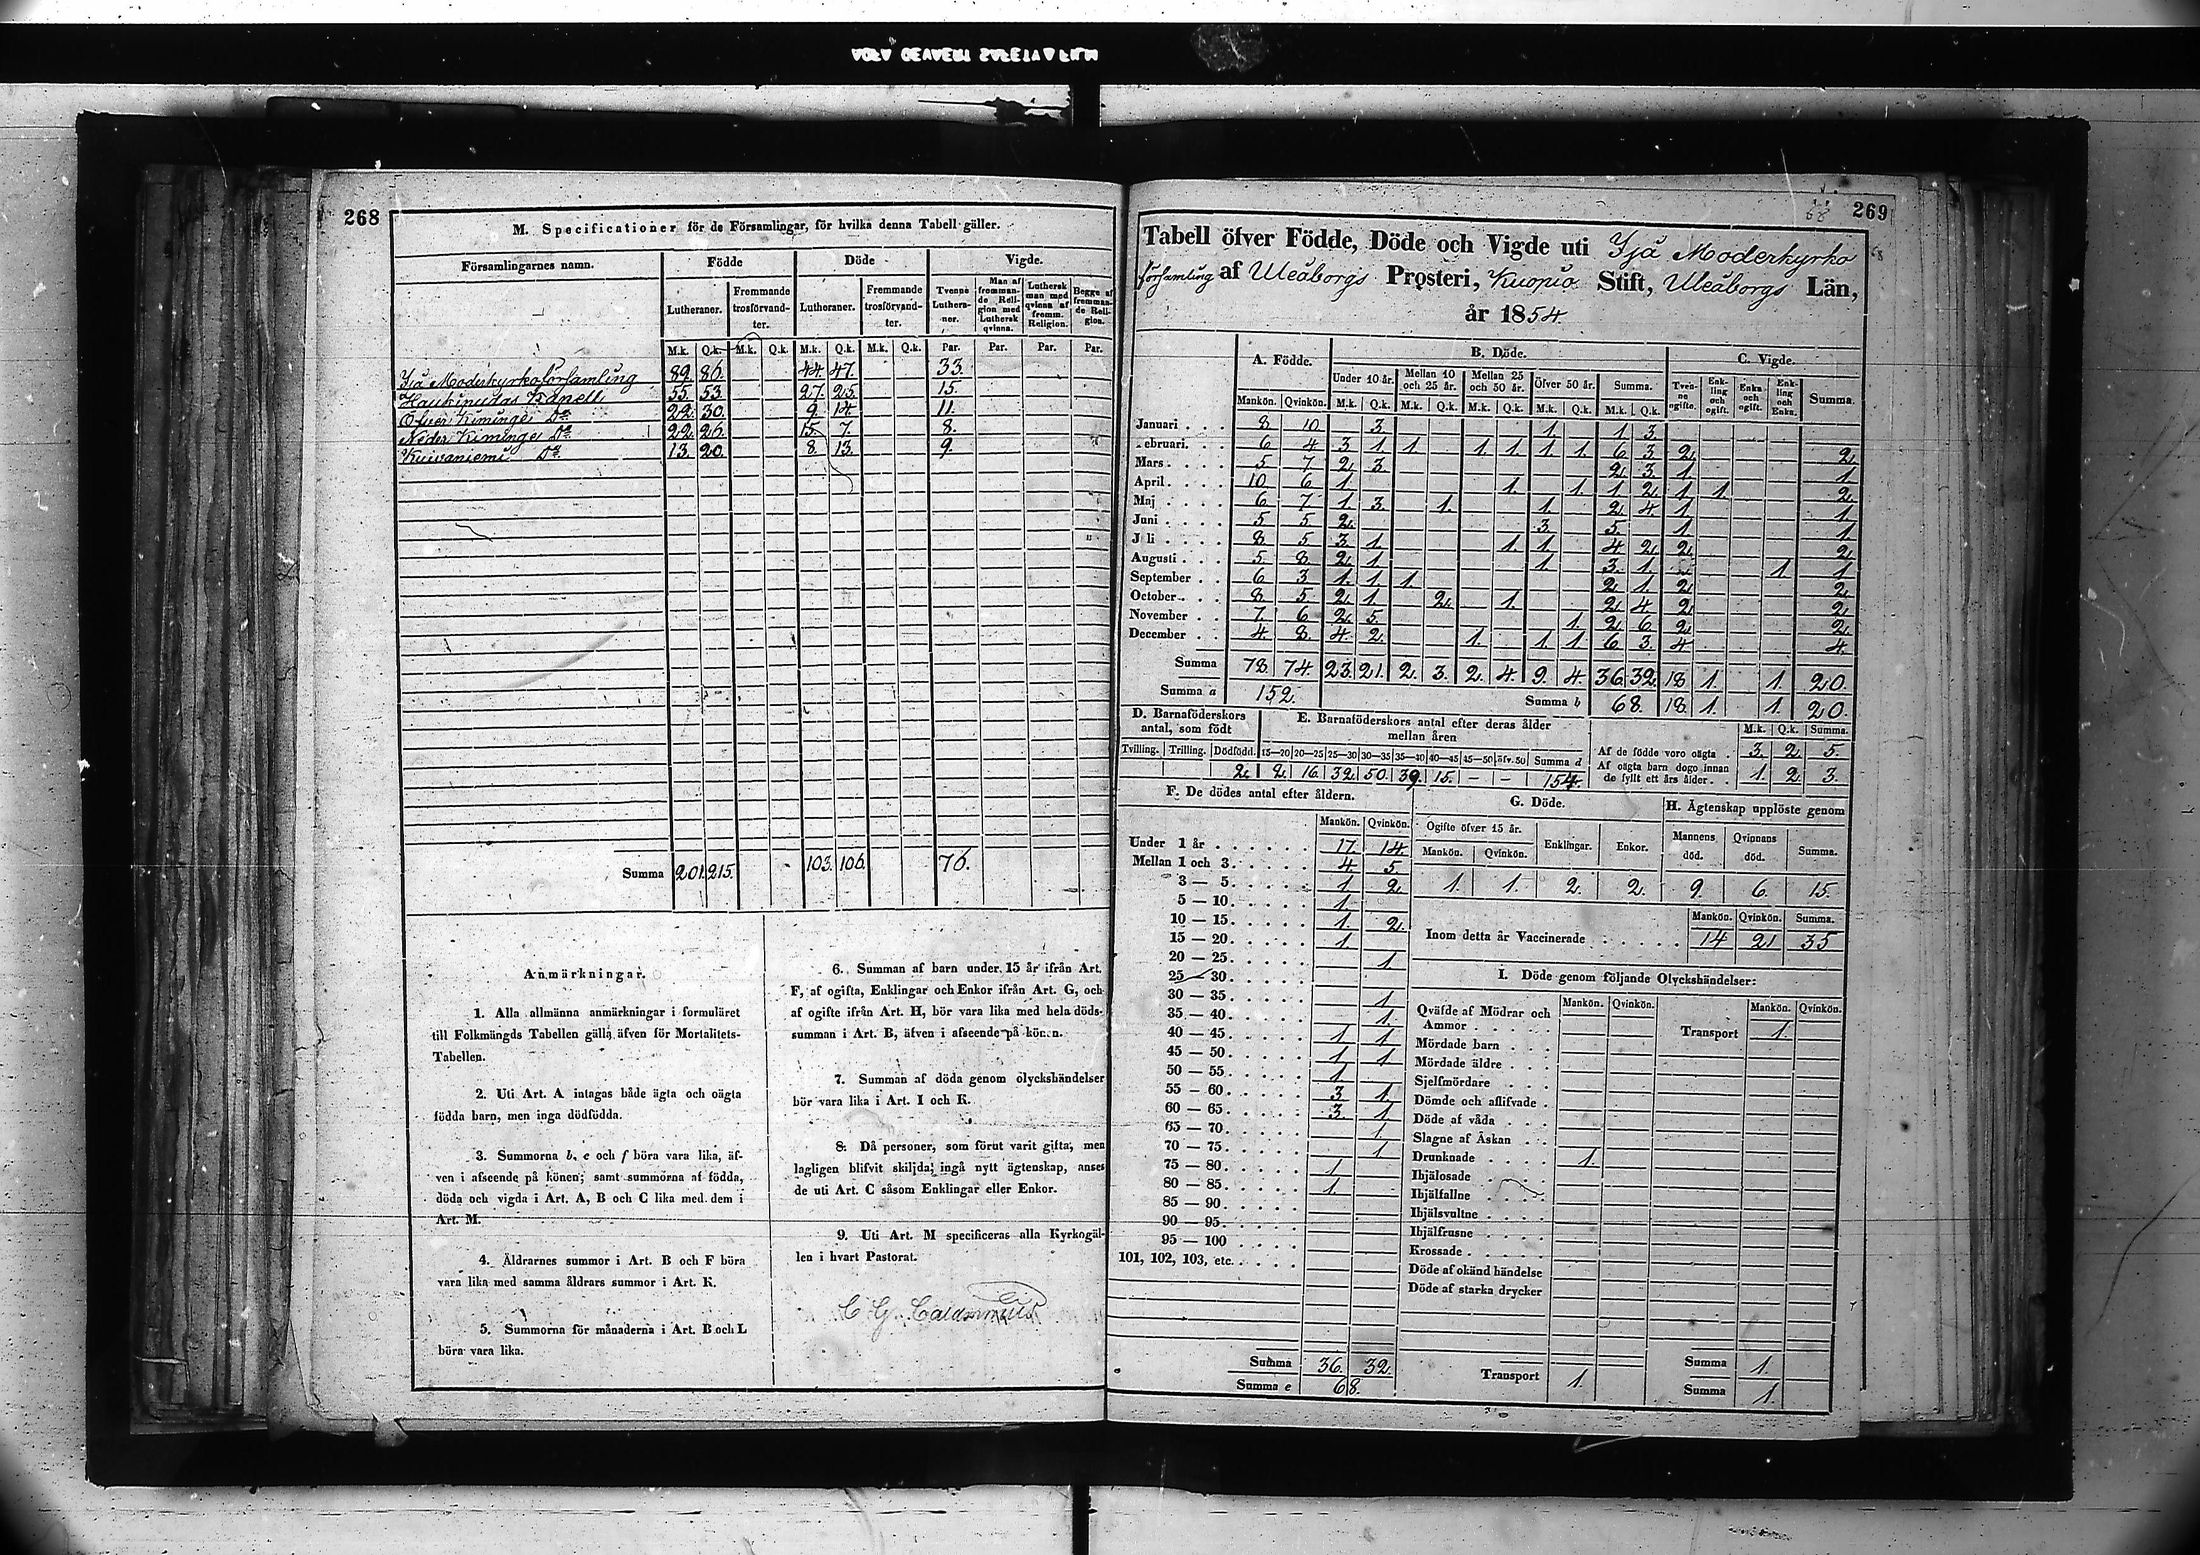 268
M. Specificationer för de Församlingar, för hvilka denna Tabell gäller.
Församlingarnes namn. Födde Döde Vigde.
Lutheraner. Fremmande trosförvandter. Lutheraner. Fremmande trosförvandter. Tvenne Lutheraner. Man af fremmande Religion med Luthersk qvinna. Luthersk man med qvinna af fremm. Religion. Begge af fremmande Religion.
M.k. Q.k. M.k. Q.k. M.k. Q.k. M.k. Q.k. Par. Par. Par. Par.
Ijå Moderkyrkoförsamling 89. 86. 44. 47. 33.
Haukipudas Kapell 55. 53. 27. 25. 15.
Öfver Kiminge Do 22. 30. 9. 14. 11.
Neder Kiminge Do 22. 26. 15. 7. 8.
Kuivaniemi Do 13. 20. 8. 13. 9.
Summa 201. 215. 103. 106. 76.
Anmärkningar.
1. Alla allmänna anmärkningar i formuläret
till Folkmängds Tabellen gälla äfven för Mortalitets-
Tabellen.
2. Uti Art. A intagas både ägta och oägta
födda barn, men inga dödfödda.
3. Summorna b, e och f böra vara lika, äf-
ven i afseende på könen; samt summorna af födda,
döda och vigda i Art. A, B och C lika med dem i
Art. M.
4. Äldrarnes summor i Art. B och F böra
vara lika med samma åldrars summor i Art. K.
5. Summorna för månaderna i Art. B och L
böra vara lika.
6. Summan af barn under 15 år ifrån Art.
F, af ogifta, Enklingar och Enkor ifrån Art. G, och
af ogifte ifrån Art. H, bör vara lika med hela döds-
summan i Art. B, äfven i afseende på könen.
7. Summan af döda genom olyckshändelser
bör vara lika i Art. I och K.
8. Då personer, som förut varit gifta, men
lagligen blifvit skiljda, ingå nytt ägtenskap, anses
de uti Art. C såsom Enklingar eller Enkor.
9. Uti Art. M specificeras alla Kyrkogäl-
len i hvart Pastorat.
C G
68 269
Tabell öfver Födde, Döde och Vigde uti Ijå Moderkyrko
församling af Uleåborgs Prosteri, Kuopio Stift, Uleåborgs Län,
år 1854.
A. Födde. B. Döde. C. Vigde.
Under 10 år. Mellan 10 och 25 år. Mellan 25 och 50 år. Öfver 50 år. Summa. Tvenne ogifte. Enkling och ogift. Enka och ogift. Enkling och Enka. Summa.
Mankön. Qvinkön. M.k. Q.k. M.k. Q.k. M.k. Q.k. M.k. Q.k. M.k. Q.k.
Januari 8. 10. 3. 1. 1. 3.
ebruari. 6. 4. 3. 1. 1. 1. 1. 1. 1. 6. 3. 2. 2.
Mars 5. 7. 2. 3. 2. 3. 1. 1.
April 10. 6. 1. 1. 1. 1. 2. 1. 1. 2.
Maj 6. 7. 1. 3. 1. 1. 2. 4. 1. 1.
Juni 5. 5. 2. 3. 5. 1. 1.
J li 8. 5. 3. 1. 1. 1. 4. 2. 2. 2.
Augusti 5. 8. 2. 1. 1. 3. 1. 1. 1.
September 6. 3. 1. 1. 1. 2. 1. 2. 2.
October 8. 5. 2. 1. 2. 1. 2. 4. 2. 2.
November 7. 6. 2. 5. 1. 2. 6. 2. 2.
December 4. 8. 4. 2. 1. 1. 1. 6. 3. 4. 4.
Summa 78. 74. 23. 21. 2. 3. 2. 4. 9. 4. 36. 32. 18. 1. 1. 20.
Summa a 152. Summa b 68. 18. 1. 1. 20.
D. Barnaföderskors antal, som födt
Tvilling. Trilling. Dödfödd.
2.
E. Barnaföderskors antal efter deras ålder mellan åren
15—20 20—25 25—30 30—35 35—40 40—45 45—50 öfv. 50 Summa d
2. 16. 32. 50. 39. 15. — — 154.
M.k. Q.k. Summa.
Af de födde voro oägta 3. 2. 5.
Af oägta barn dogo innan
de fyllt ett års ålder 1. 2. 3.
F. De dödes antal efter åldern.
Mankön. Qvinkön.
Under 1 år 17. 14.
Mellan 1 och 3 4. 5.
3 — 5 1. 2.
5 — 10 1.
10 — 15 1. 2.
15 — 20 1.
20 — 25 1.
25 — 30
30 — 35 1.
35 — 40 1.
40 — 45 1. 1.
45 — 50 1. 1.
50 — 55 1.
55 — 60 3. 1.
60 — 65 3. 1.
65 — 70 1.
70 — 75 1.
75 — 80 1.
80 — 85 1.
85 — 90
90 — 95
95 — 100
101, 102, 103, etc.
Summa 36. 32.
Summa e 68.
G. Döde.
Ogifte öfver 15 år. Enklingar. Enkor.
Mankön. Qvinkön.
1. 1. 2. 2.
H. Ägtenskap upplöste genom
Mannens död. Qvinnans död. Summa.
9. 6. 15.
Mankön. Qvinkön. Summa.
Inom detta år Vaccinerade 14 21 35
I. Döde genom följande Olyckshändelser:
Mankön. Qvinkön. Mankön. Qvinkön.
Qväfde af Mödrar och
Ammor Transport 1.
Mördade barn
Mördade äldre
Sjelfmördare
Dömde och aflifvade
Döde af våda
Slagne af Åskan
Drunknade 1.
Ihjälosade
Ihjälfallne
Ihjälsvultne
Ihjälfrusne
Krossade
Döde af okänd händelse
Döde af starka drycker
Summa 1.
Transport 1. Summa 1.